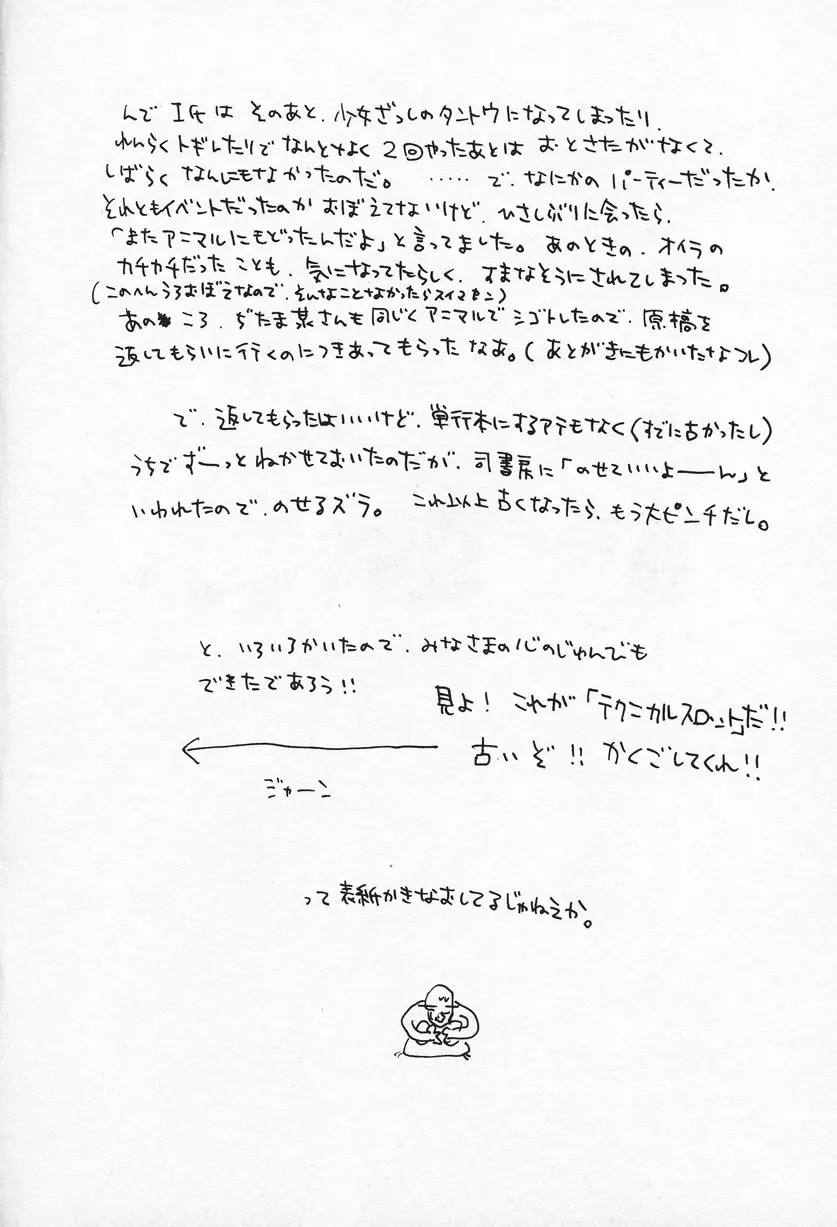 んで I氏は そのあと、少女ざっしのタントウになってしまったり、
れんらくトギレたりで なんとなく 2回やったあとは おとさたがなくて、
しばらく なんにもなかったのだ。 ‥‥‥ で、なにかの パーティーだったか、
それともイベントだったのか おぼえてないけど、ひさしぶりに会ったら、
「またアニマルにもどったんだよ」と言ってました。 あのときの、オイラの
カチカチだった ことも、気になってたらしく、すまなそうにされてしまった。
(このへんうろおぼえなので、そんなことなかったらスイマセン)
あの ころ、ぢたま某さんも同じくアニマルでシゴトしたので、原稿を
返してもらいに行くのにつきあってもらった なあ。(あとがきにもかいたなコレ)
で、返してもらったはいいけど、単行本にするアテもなく(すでに古かったし)
うちでずーっと ねかせておいたのだが、司書房に「のせていいよーーん」と
いわれたので、のせるズラ。 これ以上 古くなったら、もう大ピンチだし。
と、いろいろかいたので、みなさまの心のじゅんびも
できたであろう!!
見よ! これが「テクニカルスロット」だ!!
古いぞ!! かくごしてくれ!!
ジャーン
って 表紙かきなおしてるじゃねえか。